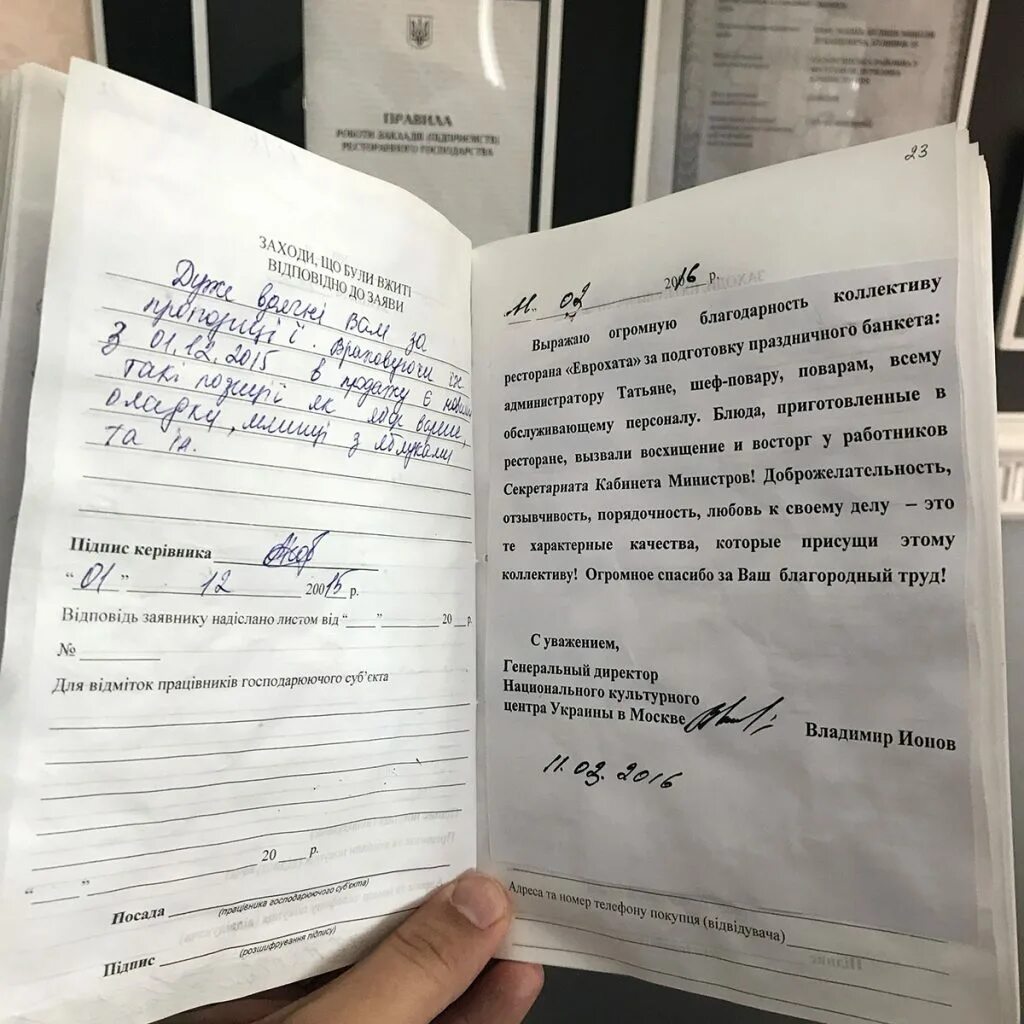 ПРАВИЛА
РОБОТИ ЗАКЛАДІВ (ПІДПРИЄМСТВ)
РЕСТОРАННОГО ГОСПОДАРСТВА
ЗАХОДИ, ЩО БУЛИ ВЖИТІ
ВІДПОВІДНО ДО ЗАЯВИ
Дуже вдячні Вам за
пропозиції. Враховуючи їх
З 01.12.2015 в продажу є
такі позиції як
оладки, млинці з яблуками
та ін.
Підпис керівника
"01" 12 20015 р.
Відповідь заявнику надіслано листом від "____" ________ 20 __ р.
№ ________
Для відміток працівників господарюючого суб'єкта
"____" ________ 20 ___ р.
Посада
(працівника господарюючого суб'єкта)
Підпис
(розшифрування підпису)
23
11. 02 2016 р.
Выражаю огромную благодарность коллективу
ресторана «Еврохата» за подготовку праздничного банкета:
администратору Татьяне, шеф-повару, поварам, всему
обслуживающему персоналу. Блюда, приготовленные в
ресторане, вызвали восхищение и восторг у работников
Секретариата Кабинета Министров! Доброжелательность,
отзывчивость, порядочность, любовь к своему делу – это
те характерные качества, которые присущи этому
коллективу! Огромное спасибо за Ваш благородный труд!
С уважением,
Генеральный директор
Национального культурного
центра Украины в Москве
Владимир Ионов
11.02.2016
Адреса та номер телефону покупця (відвідувача)